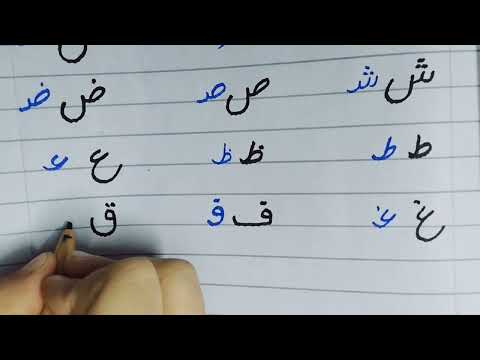 ش شـ ص صـ ض ضـ
ط ط ظ ظ ع عـ
غ غـ ف فـ ق